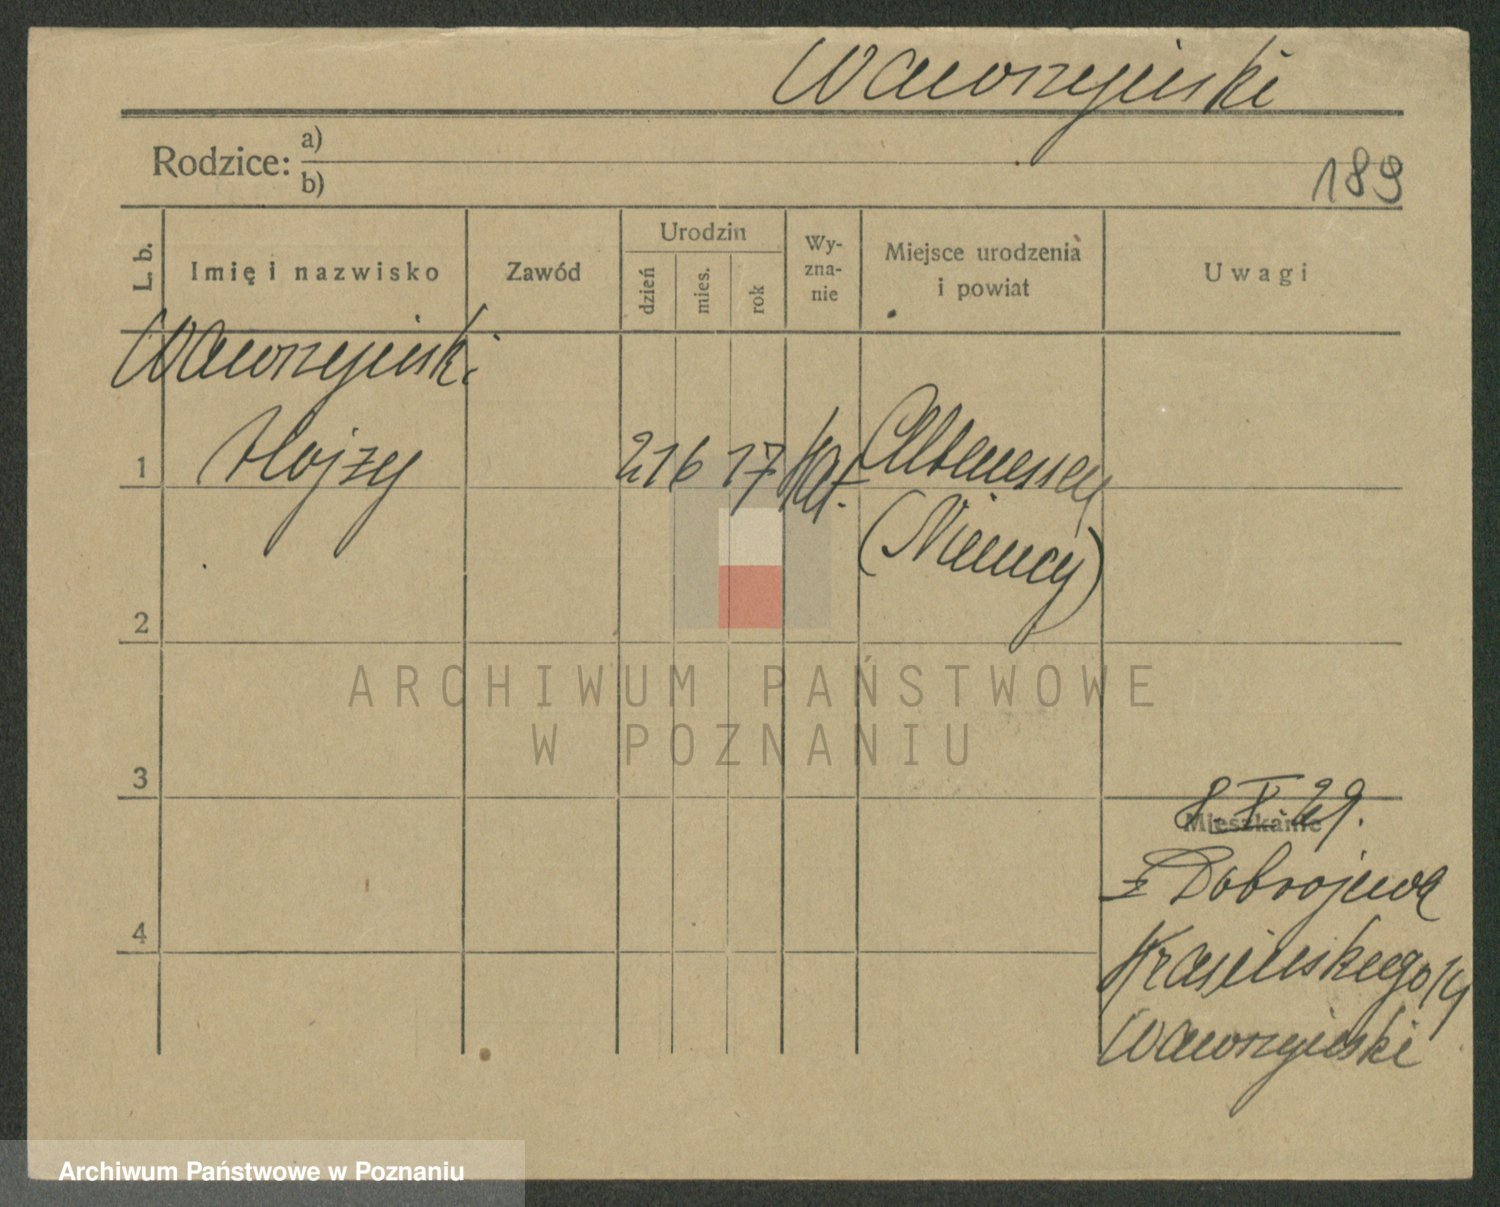 Wawrzyński
Rodzice: a)
b)
189
L. b.
Imię i nazwisko
Zawód
Urodzin
dzień
mies.
rok
Wy-
zna-
nie
Miejsce urodzenia
i powiat
Uwagi
Wawrzyński
1 Alojzy 21 6 17 kat. Altenessen
(Niemcy)
2
ARCHIWUM PAŃSTWOWE
W POZNANIU
3
8. X. 29.
Mieszkanie
z Dobrojewa
4
Krasińskiego
Wawrzyński
Archiwum Państwowe w Poznaniu